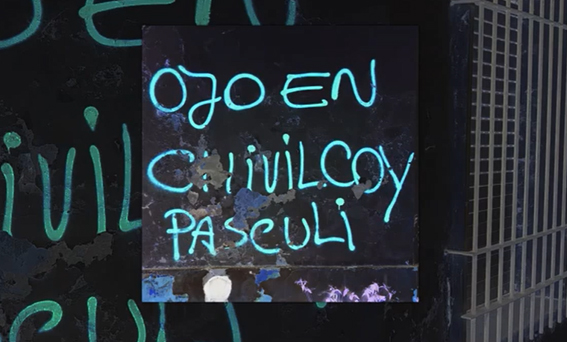 OJO EN
CHIVILCOY
PASCULI